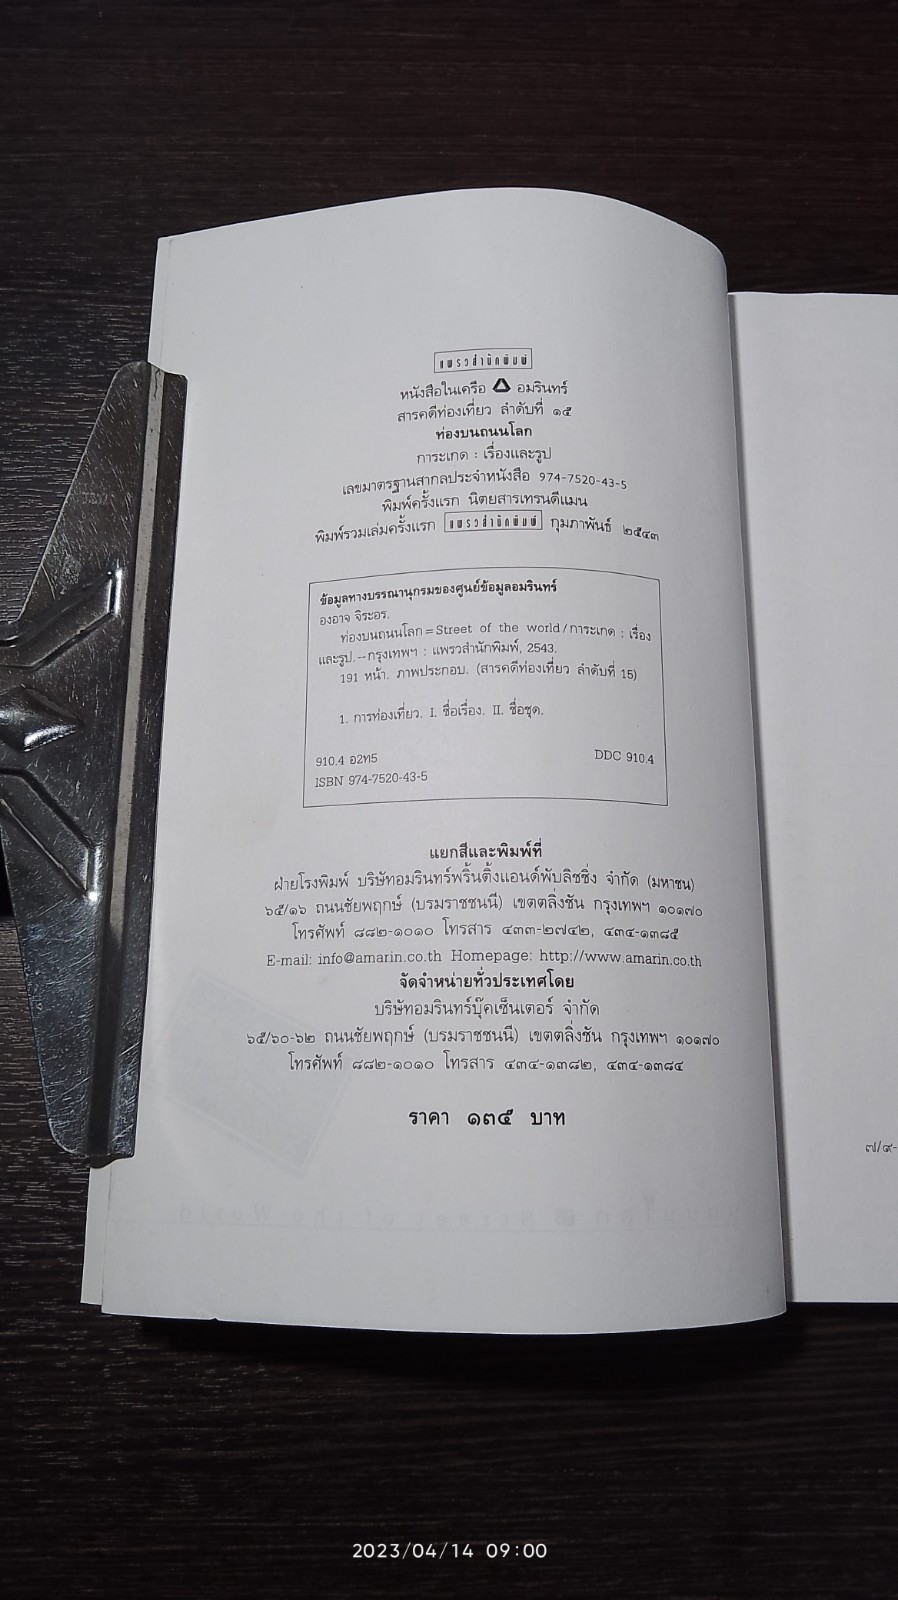 แพรวสำนักพิมพ์
หนังสือในเครือ อมรินทร์
สารคดีท่องเที่ยว ลำดับที่ ๑๕
ท่องบนถนนโลก
การะเกด : เรื่องและรูป
เลขมาตรฐานสากลประจำหนังสือ 974-7520-43-5
พิมพ์ครั้งแรก นิตยสารเทรนดีแมน
พิมพ์รวมเล่มครั้งแรก แพรวสำนักพิมพ์ กุมภาพันธ์ ๒๕๔๓
ข้อมูลทางบรรณานุกรมของศูนย์ข้อมูลอมรินทร์
องอาจ จิระอร.
ท่องบนถนนโลก = Street of the world / การะเกด : เรื่อง
และรูป.--กรุงเทพฯ : แพรวสำนักพิมพ์, 2543.
191 หน้า. ภาพประกอบ. (สารคดีท่องเที่ยว ลำดับที่ 15)
1. การท่องเที่ยว. I. ชื่อเรื่อง. II. ชื่อชุด.
910.4 อ2ท5 DDC 910.4
ISBN 974-7520-43-5
แยกสีและพิมพ์ที่
ฝ่ายโรงพิมพ์ บริษัทอมรินทร์พริ้นติ้งแอนด์พับลิชชิ่ง จำกัด (มหาชน)
๖๕/๑๖ ถนนชัยพฤกษ์ (บรมราชชนนี) เขตตลิ่งชัน กรุงเทพฯ ๑๐๑๗๐
โทรศัพท์ ๘๘๒-๑๐๑๐ โทรสาร ๔๓๓-๒๗๔๒, ๔๓๔-๑๓๘๕
E-mail: info@amarin.co.th Homepage: http://www.amarin.co.th
จัดจำหน่ายทั่วประเทศโดย
บริษัทอมรินทร์บุ๊คเซ็นเตอร์ จำกัด
๖๕/๖๐-๖๒ ถนนชัยพฤกษ์ (บรมราชชนนี) เขตตลิ่งชัน กรุงเทพฯ ๑๐๑๗๐
โทรศัพท์ ๘๘๒-๑๐๑๐ โทรสาร ๔๓๔-๑๓๘๒, ๔๓๔-๑๓๘๔
ราคา ๑๓๕ บาท
๗/๙-
2023/04/14 09:00